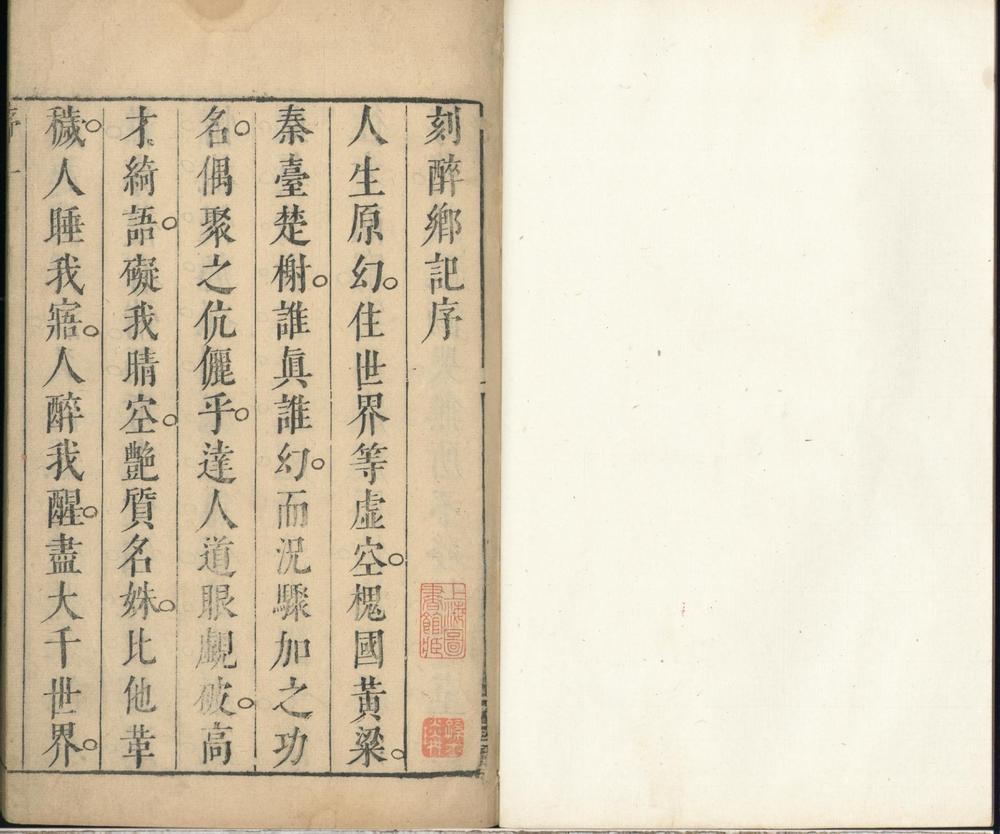 刻醉鄉記序
人生原幻。住世界等虛空。槐國黃粱。
秦臺楚榭。誰眞誰幻。而況驟加之功
名。偶聚之伉儷乎。達人道眼覷破。高
才綺語。礙我晴空。艷質名姝。比他革
穢。人睡我寤。人醉我醒。盡大千世界。
序 一
上海圖
書館藏